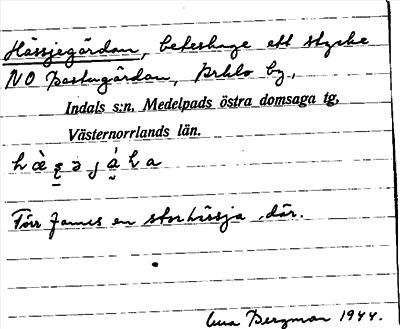 Hässjegärdan, beteshage ett stycke
NO Bastugärdan, by,
Indals s:n, Medelpads östra domsaga tg,
Västernorrlands län.
Förr fanns en storhässja där.
Bergman 1944.